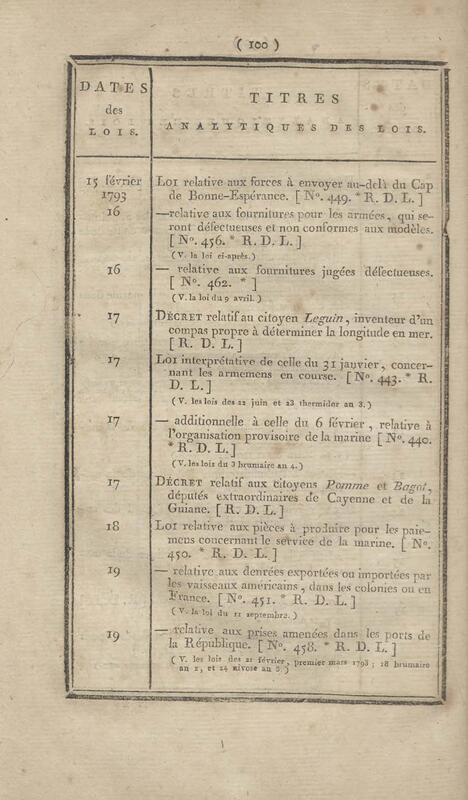 ( 100 )
DATES
des
LOIS.
TITRES
ANALYTIQUES DES LOIS.
15 février
1793
Loi relative aux forces à envoyer au-delà du Cap
de Bonne-Espérance. [ Nº. 449. * R. D. L. ]
16
—relative aux fournitures pour les armées, qui se-
ront défectueuses et non conformes aux modèles.
[ Nº. 456. * R. D. L. ]
( V. la loi ci-après. )
16
— relative aux fournitures jugées défectueuses.
[ Nº. 462. * ]
( V. la loi du 9 avril. )
17
Décret relatif au citoyen Leguin, inventeur d'un
compas propre à déterminer la longitude en mer.
[ R. D. L. ]
17
Loi interprétative de celle du 31 janvier, concer-
nant les armemens en course. [ Nº. 443. * R.
D. L. ]
( V. les lois des 22 juin et 23 thermidor an 3. )
17
— additionnelle à celle du 6 février, relative à
l'organisation provisoire de la marine [ Nº. 440.
* R. D. L. ]
( V. les lois du 3 brumaire an 4. )
17
Décret relatif aux citoyens Pomme et Bagot,
députés extraordinaires de Cayenne et de la
Guiane. [ R. D. L. ]
18
Loi relative aux pièces à produire pour les paie-
mens concernant le service de la marine. [ Nº.
450. * R. D. L. ]
19
— relative aux denrées exportées ou importées par
les vaisseaux américains, dans les colonies ou en
France. [ Nº. 451. * R. D. L. ]
( V. la loi du 11 septembre. )
19
— relative aux prises amenées dans les ports de
la République. [ Nº. 458. * R. D. L. ]
( V. les lois des 21 février, premier mars 1793 ; 18 brumaire
an 2, et 24 nivose an 3. )